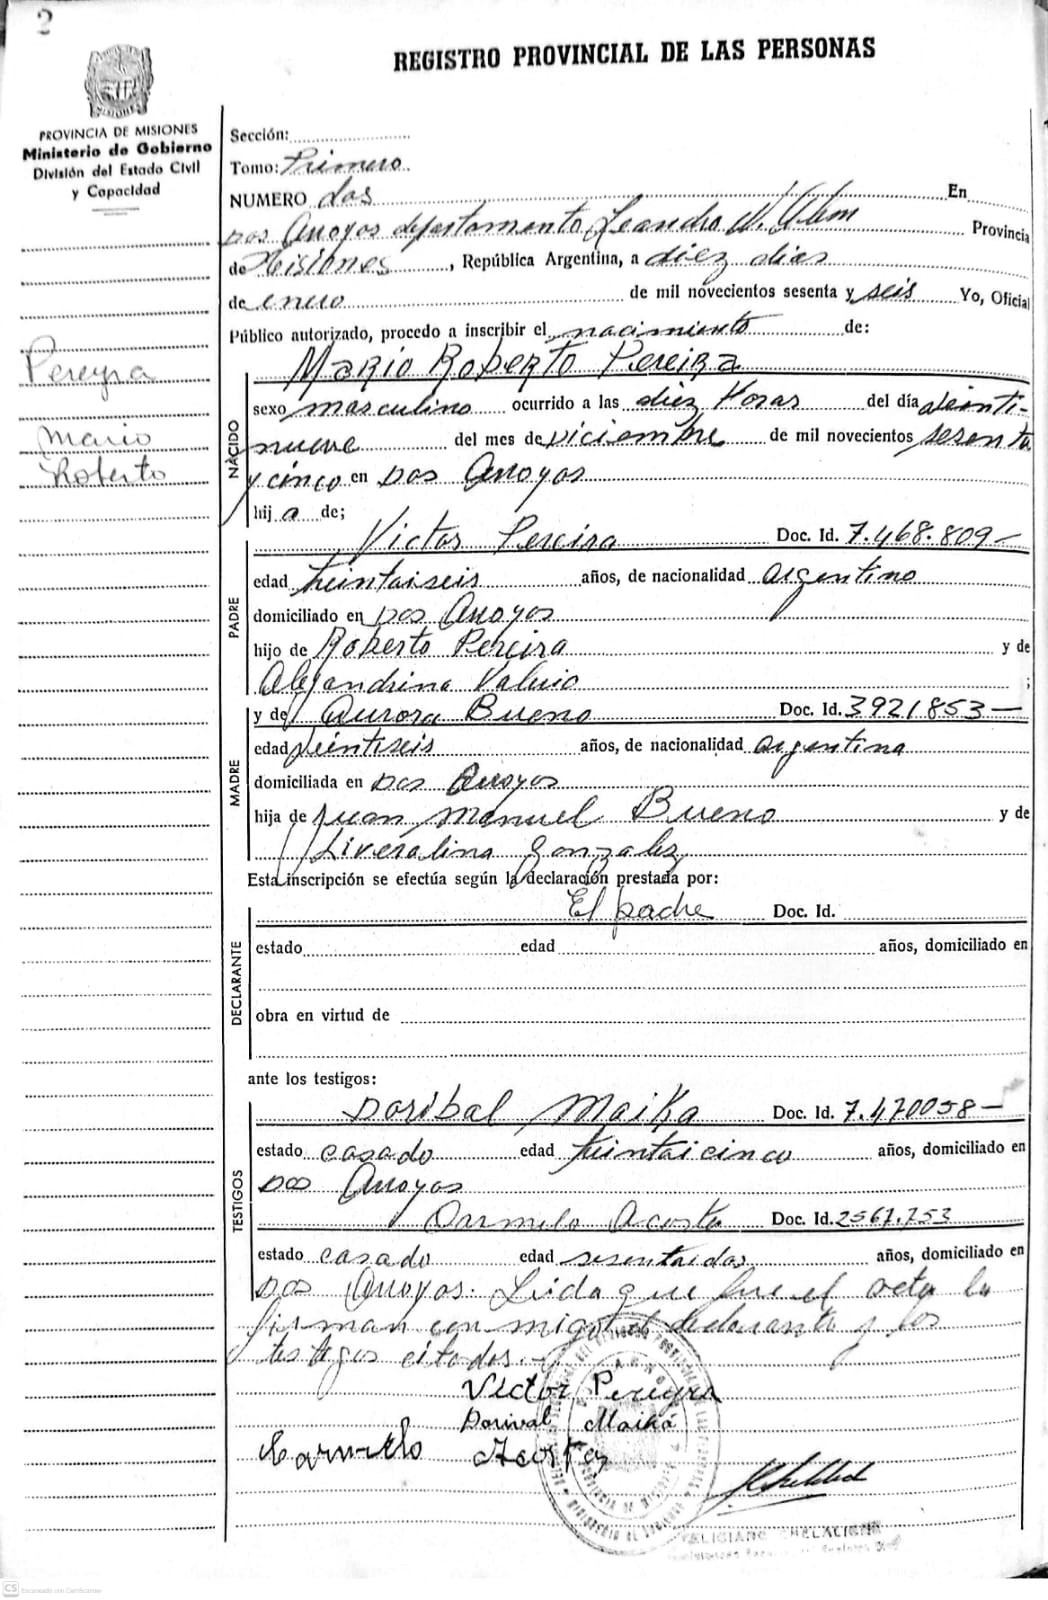 2
REGISTRO PROVINCIAL DE LAS PERSONAS
PROVINCIA DE MISIONES
Ministerio de Gobierno
División del Estado Civil
y Capacidad
Pereyra
Mario
Roberto
Sección:
Tomo: Primero.
NUMERO dos En
Dos Arroyos departamento Leandro N. Alem Provincia
de Misiones, República Argentina, a diez dias
de enero de mil novecientos sesenta y seis Yo, Oficial
Público autorizado, procedo a inscribir el nacimiento de:
NACIDO
Mario Roberto Pereira
sexo masculino ocurrido a las diez Horas del día Veinti-
nueve del mes de Diciembre de mil novecientos sesenta
y cinco en Dos Arroyos
hij o de;
PADRE
Victor Pereira Doc. Id. 7.468.809-
edad treintaiseis años, de nacionalidad argentino
domiciliado en Dos Arroyos
hijo de Roberto Pereira y de
Alejandrina Valerio ;
MADRE
y de Aurora Bueno Doc. Id. 3921853-
edad veintiseis años, de nacionalidad argentina
domiciliada en Dos Arroyos
hija de Juan Manuel Bueno y de
Liveralina Gonzalez
Esta inscripción se efectúa según la declaración prestada por:
DECLARANTE
El padre Doc. Id.
estado edad años, domiciliado en
obra en virtud de
ante los testigos:
TESTIGOS
Doribal Maika Doc. Id. 7.470058-
estado casado edad treintaicinco años, domiciliado en
Dos Arroyos
Carmelo Acosta Doc. Id. 2567.753
estado casado edad sesentaidos años, domiciliado en
Dos Arroyos. Leida que fue el acta la
firman con migo el declarante y los
testegos citados.-
Victor Pereyra
Dorival Maika
Carmelo Acosta
CS Escaneado con CamScanner